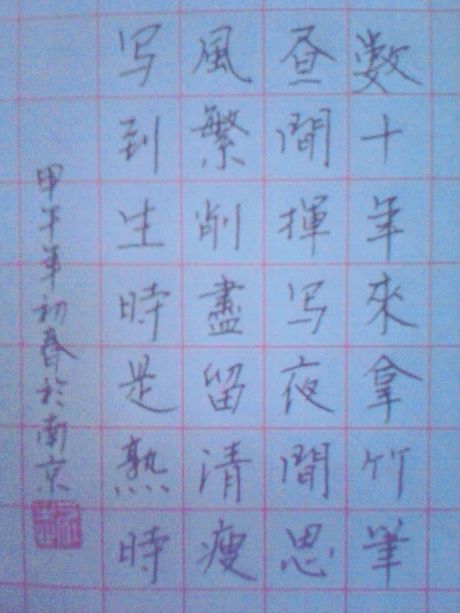 數十年來拿竹筆
昼間揮写夜間思
風繁削盡留清瘦
写到生時是熟時
甲午年初春於南京